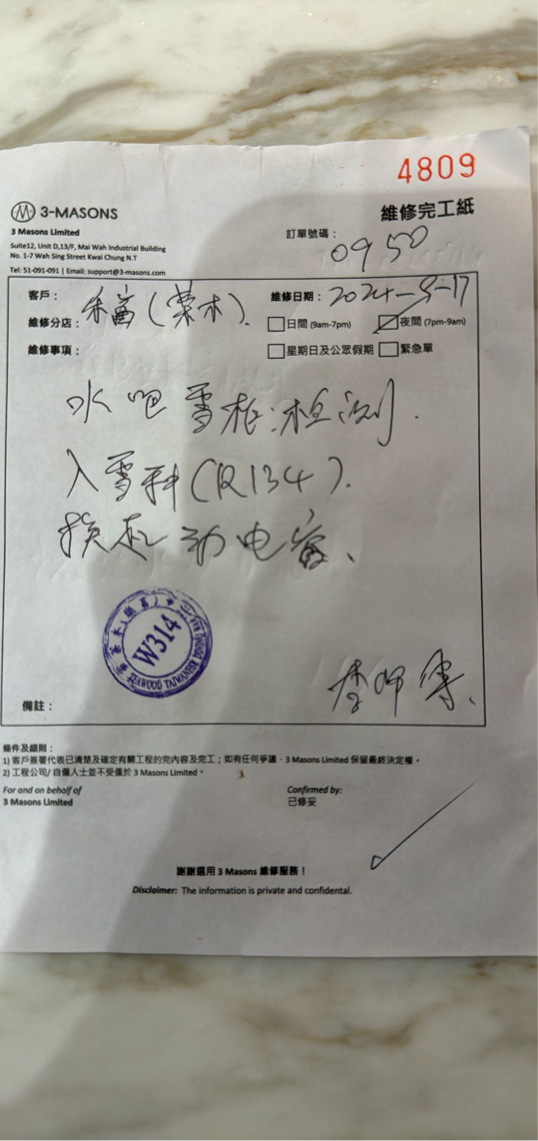 4809
3-MASONS
維修完工紙
3 Masons Limited
訂單號碼：0950
Suite12, Unit D,13/F, Mai Wah Industrial Building
No. 1-7 Wah Sing Street Kwai Chung N.T
Tel: 51-091-091 | Email: support@3-masons.com
客戶：
維修日期：2024-5-17
維修分店：
禾畄（茶木）.
日間 (9am-7pm)
夜間 (7pm-9am)
維修事項：
星期日及公眾假期
緊急單
水吧雪柜:检测.
入雪种(R134).
换起动电容、
W314
TEAWOOD TAIWANESE DINING BAR
李师傅、
備註：
條件及細則：
1) 客戶簽署代表已清楚及確定有關工程的完內容及完工；如有任何爭議，3 Masons Limited 保留最終決定權。
2) 工程公司/ 自僱人士並不受僱於 3 Masons Limited。
For and on behalf of
3 Masons Limited
Confirmed by:
已修妥
謝謝選用 3 Masons 維修服務！
Disclaimer: The information is private and confidental.